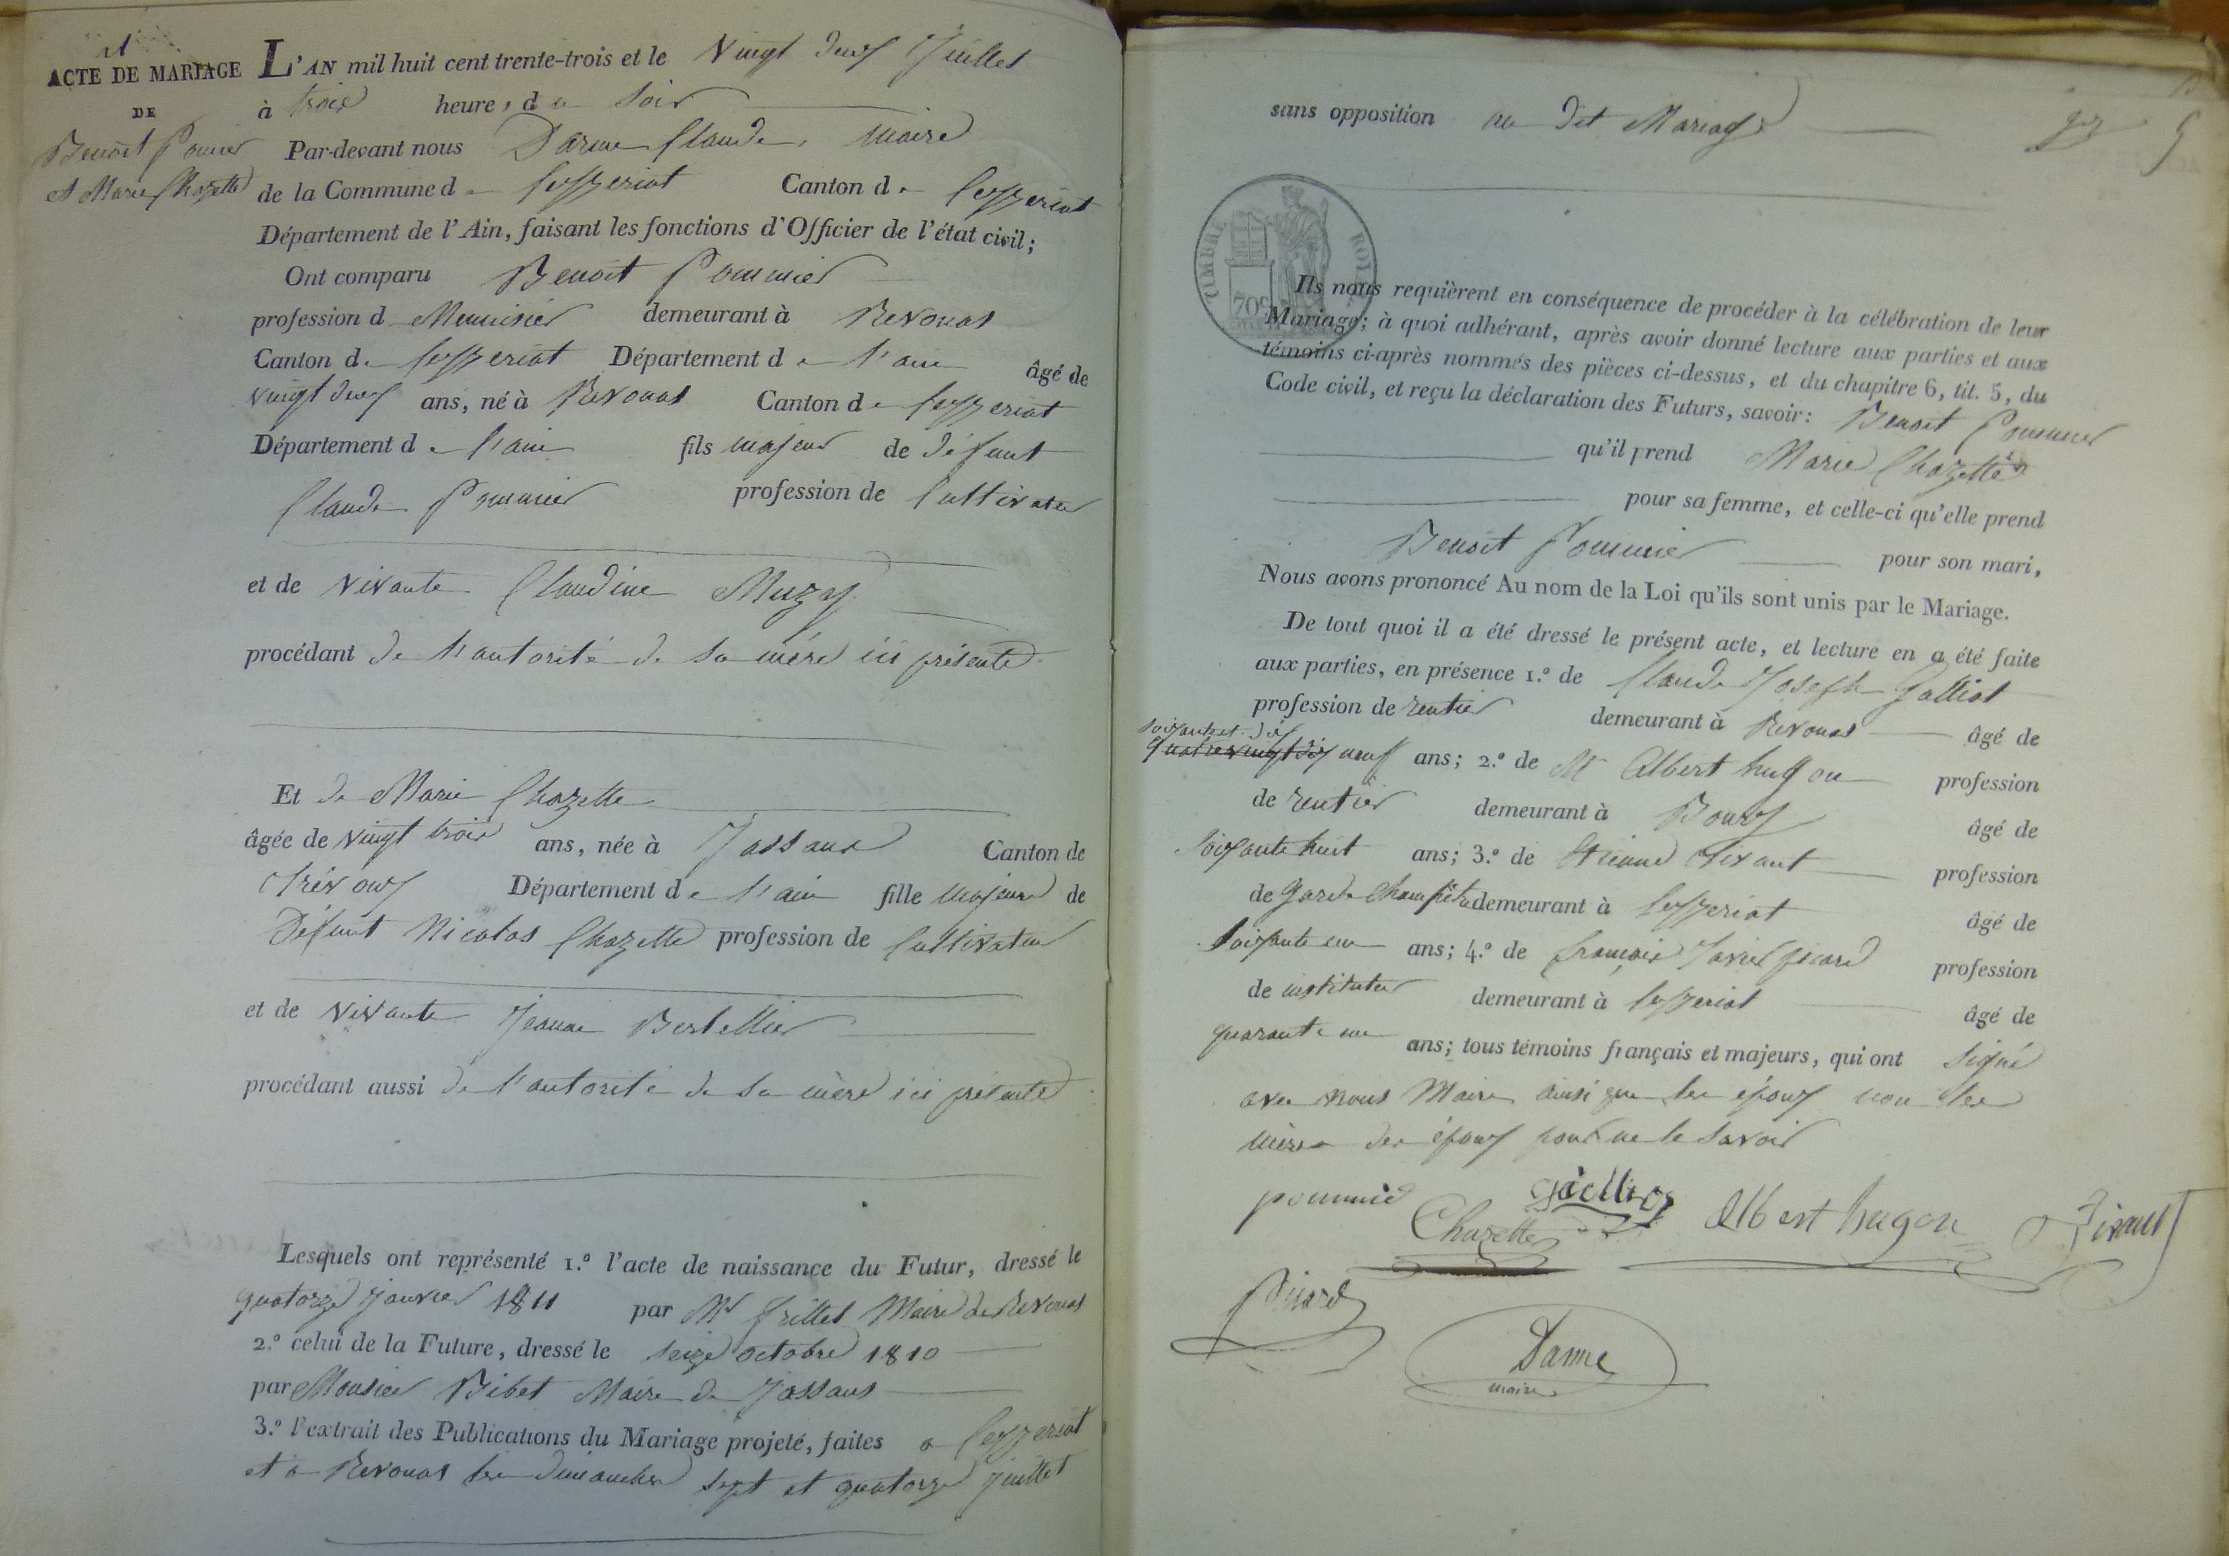 ACTE DE MARIAGE
DE
Benoit Pommier
et Marie Chazette
L'AN mil huit cent trente-trois et le vingt deux Juillet
à trois heures du soir
Par-devant nous Darme Claude, Maire
de la Commune de Ceyzeriat Canton de Ceyzeriat
Département de l'Ain, faisant les fonctions d'Officier de l'état civil;
Ont comparu Benoit Pommier
profession de Menuisier demeurant à Revonas
Canton de Ceyzeriat Département de l'ain âgé de
vingt deux ans, né à Revonas Canton de Ceyzeriat
Département de l'ain fils majeur de défunt
Claude Pommier profession de Cultivateur
et de vivante Claudine Muzy
procédant de l'autorité de sa mère ici présente
Et de Marie Chazette
âgée de vingt trois ans, née à Jassans Canton de
Trévoux Département de l'ain fille majeure de
Défunt Nicolas Chazette profession de Cultivateur
et de vivante Jeanne Berthellier
procédant aussi de l'autorité de sa mère ici présente
Lesquels ont représenté 1.º l'acte de naissance du Futur, dressé le
quatorze janvier 1811 par Mr frillet Maire de Revonas
2.º celui de la Future, dressé le seize octobre 1810
par Monsieur Bibet Maire de Jassans
3.º l'extrait des Publications du Mariage projeté, faites a Ceyzeriat
et a Revonas les dimanches sept et quatorze juillet
sans opposition au dit Mariage
TIMBRE ROYAL
70c
Ils nous requièrent en conséquence de procéder à la célébration de leur
Mariage; à quoi adhérant, après avoir donné lecture aux parties et aux
témoins ci-après nommés des pièces ci-dessus, et du chapitre 6, tit. 5, du
Code civil, et reçu la déclaration des Futurs, savoir: Benoit Pommier
qu'il prend Marie Chazette
pour sa femme, et celle-ci qu'elle prend
Benoit Pommier pour son mari,
Nous avons prononcé Au nom de la Loi qu'ils sont unis par le Mariage.
De tout quoi il a été dressé le présent acte, et lecture en a été faite
aux parties, en présence 1.º de Claude Joseph Galliot
profession de rentier demeurant à Revonas âgé de
soixante dix
quatre vingt dix neuf ans; 2.º de Mr Albert hugon profession
de rentier demeurant à Bourg âgé de
soixante huit ans; 3.º de Etienne Tivant profession
de Garde Champêtre demeurant à Ceyzeriat âgé de
soixante un ans; 4.º de françois Xavier picard profession
de instituteur demeurant à Ceyzeriat âgé de
quarante un ans; tous témoins français et majeurs, qui ont signé
avec nous Maire ainsi que les époux non les
mères des époux pour ne le savoir
pommier Chazette Galliot Albert hugon Tivant
Picard
Darme
maire